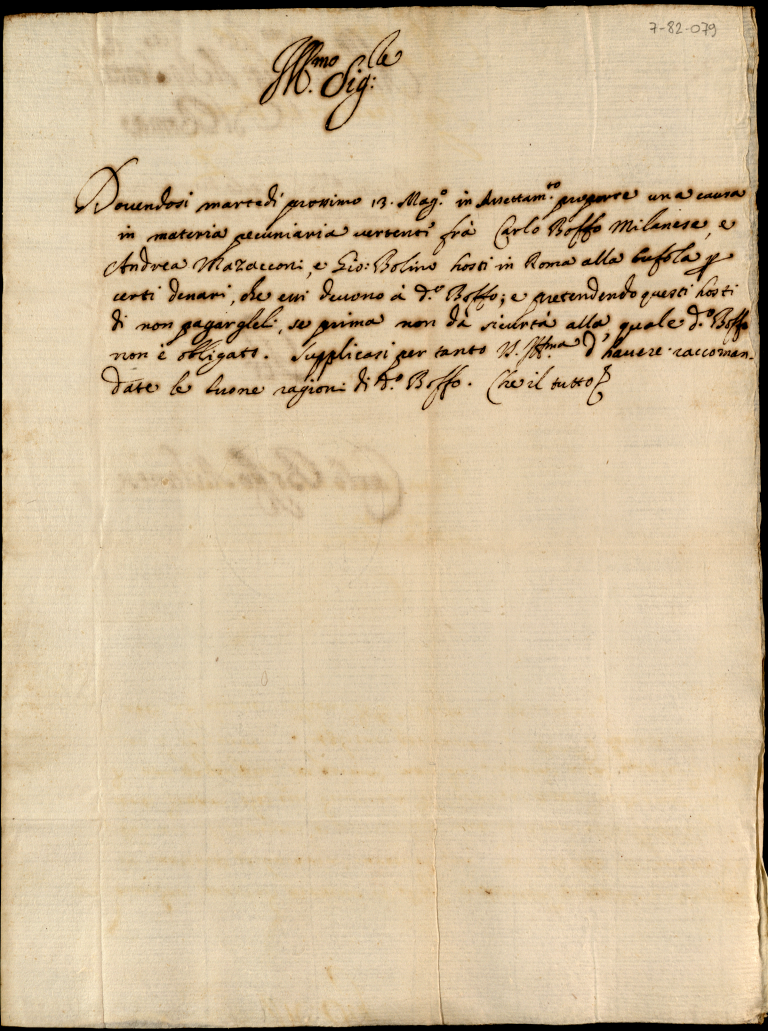 7-82-079
Ill.mo Sig.re
Dovendosi martedi prossimo 13. Mag.o in Assettam.to proporre una causa
in materia pecuniaria vertenti frà Carlo Boffo Milanese, e
Andrea Mazacconi, e Gio: Bolino hosti in Roma alla bufola p
certi denari, che essi devono à d.o Boffo; e pretendendo questi hosti
di non pagargleli, se prima non dà sicurtà alla quale d.o Boffo
non è obligato. Supplicasi per tanto V. Ill.ma d'havere raccoman-
date le buone ragioni di d.o Boffo. Che il tutto